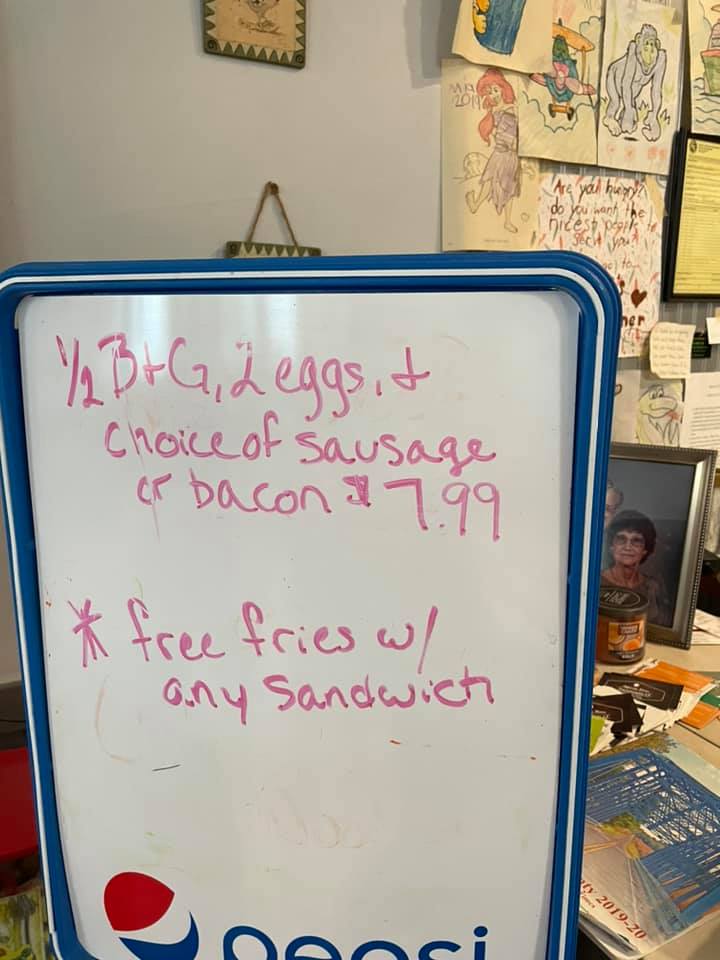 2019
Are you hungry?
do you want the
nicest people to
1/2 B+G, 2 eggs, +
choice of sausage
or bacon $7.99
* free fries w/
any sandwich
pepsi
2019-20